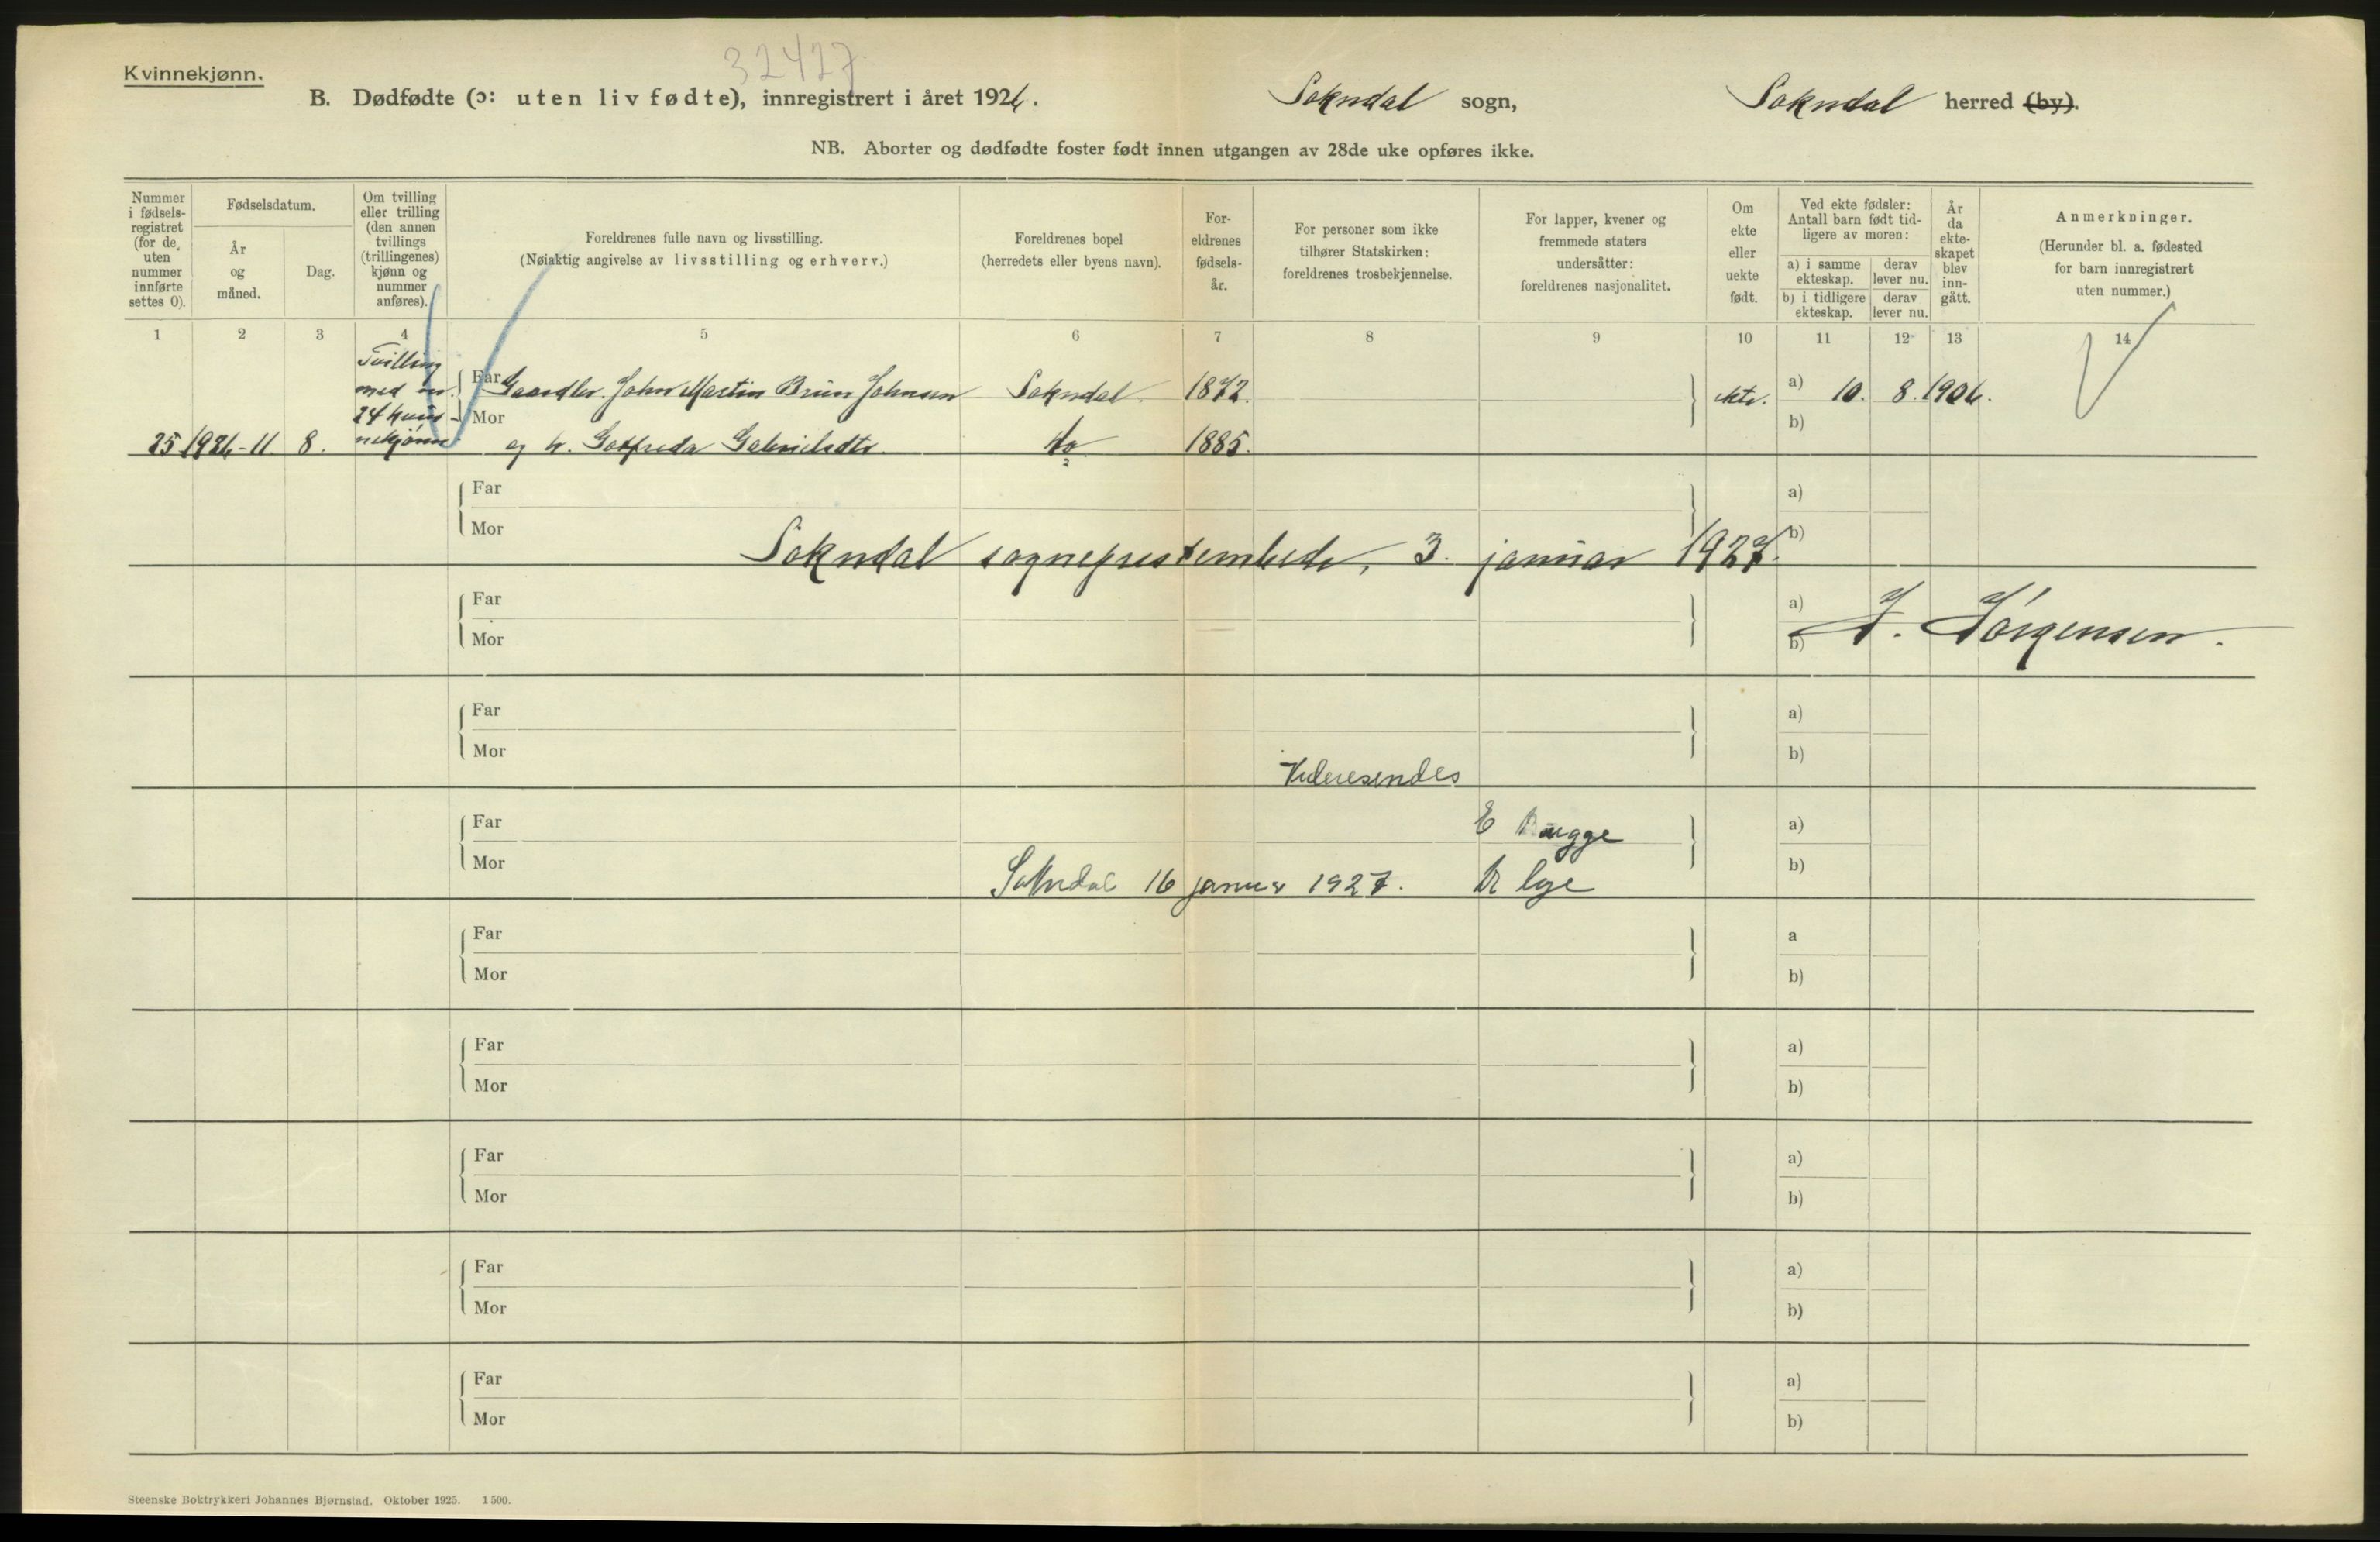 32427
Kvinnekjønn.
B. Dødfødte (ɔ: uten liv fødte), innregistrert i året 1926. Sokndal sogn, Sokndal herred (by).
NB. Aborter og dødfødte foster født innen utgangen av 28de uke opføres ikke.
Nummer i fødsels- registret (for de uten nummer innførte settes 0).
Fødselsdatum.
År og måned.
Dag.
Om tvilling eller trilling (den annen tvillings (trillingenes) kjønn og nummer anføres).
Foreldrenes fulle navn og livsstilling.
(Nøiaktig angivelse av livsstilling og erhverv.)
Foreldrenes bopel
(herredets eller byens navn).
For- eldrenes fødsels- år.
For personer som ikke tilhører Statskirken: foreldrenes trosbekjennelse.
For lapper, kvener og fremmede staters undersåtter: foreldrenes nasjonalitet.
Om ekte eller uekte født.
Ved ekte fødsler: Antall barn født tid- ligere av moren:
a) i samme ekteskap. derav lever nu.
b) i tidligere ekteskap. derav lever nu.
År da ekte- skapet blev inn- gått.
Anmerkninger.
(Herunder bl. a. fødested for barn innregistrert uten nummer.)
1 2 3 4 5 6 7 8 9 10 11 12 13 14
Tvilling
med nr.
24 kvin-
nekjønn.
Far Gaardbr. John Martin Brun Johnsen Sokndal. 1872. ekte. a) 10. 8. 1906.
Mor b)
25 1926-11. 8. og h. Gotfreda Gabrielsdtr. do 1885.
Far a)
Mor b)
Sokndal sogneprestembede, 3. januar 1927.
Far a)
J. Jørgensen.
Mor b)
Far a)
Mor b)
Videresendes
Far E Bugge a)
Mor b)
Sokndal 16 januar 1927. D. lge
Far a
Mor b)
Far a)
Mor b)
Far a)
Mor b)
Far a)
Mor b)
Far a)
Mor b)
Steenske Boktrykkeri Johannes Bjørnstad. Oktober 1925. 1500.